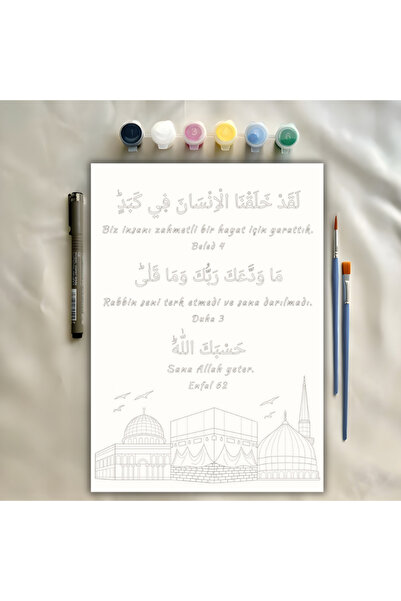 1 3 4 5 6
لَقَدْ خَلَقْنَا الْاِنْسَانَ ف۪ي كَبَدٍۜ
Biz insanı zahmetli bir hayat için yarattık.
Beled 4
مَا وَدَّعَكَ رَبُّكَ وَمَا قَلٰىۜ
Rabbin seni terk etmedi ve sana darılmadı.
Duha 3
حَسْبَكَ اللّٰهُۜ
Sana Allah yeter.
Enfal 62